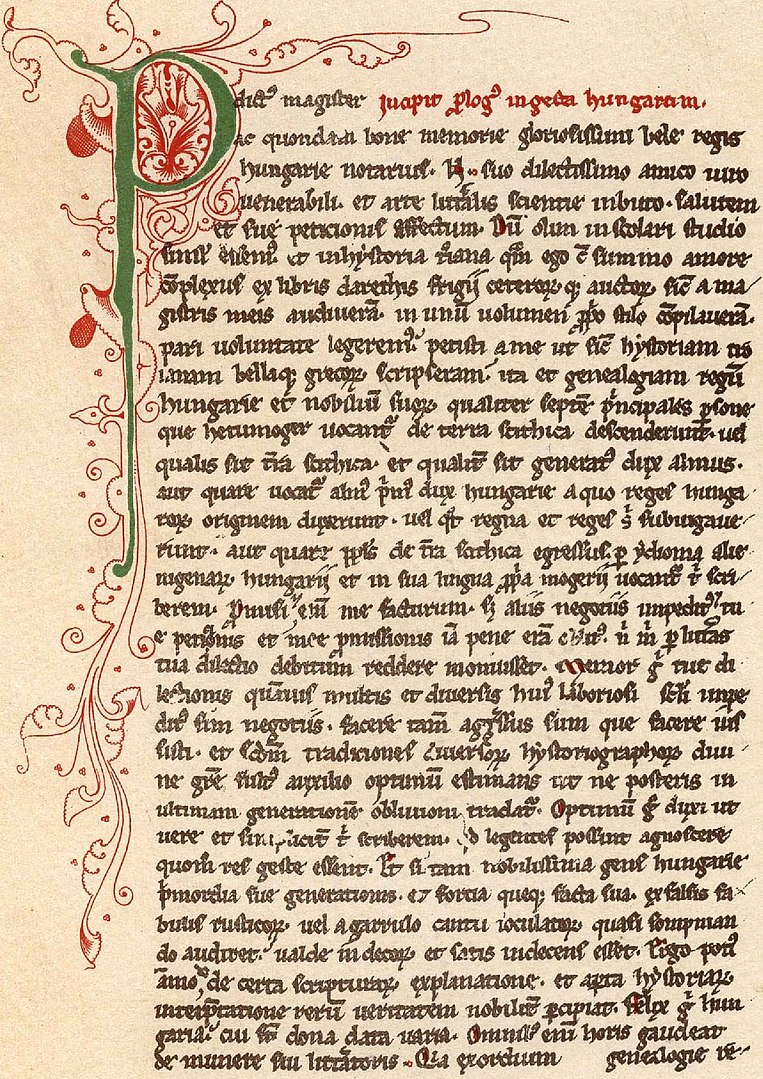 P dictꝰ magister Incipit ꝓlogꝰ in gesta hungarum.
ac quondam bone memorie gloriosissimi bele regis
hungarie notarius. N. suo dilectissimo amico uiro
uenerabili. et arte litt̃alis scientie inbuto. salutem
et sue peticionis effectum. Dũ olim in scolari studio
simul essemꝰ. et in hystoria t̃iana qm̃ ego cũ summo amore
cõplexus ex libris darethis frigij ceterorꝝ qꝫ auctorꝝ. sic̃ a ma
gistris meis audiuerã. in unũ uolumen ꝓprio stilo cõpilauerã.
pari uoluntate legeremꝰ. petisti a me ut sic̃ hystoriam tro
ianam bellaqꝫ grecorꝝ scripseram. ita et genealogiam regũ
hungarie et nobiliũ suorꝝ. qualiter septẽ p̃ncipales ꝑsone
que hetumoger uocant᷑ de terra scithica descenderunt. uel
qualis sit t̃ra scithica. et qualit̃ sit generatꝰ dux almus.
aut quare uocat᷑ almꝰ p̃mꝰ dux hungarie a quo reges hunga
rorꝝ originem duxerunt. uel qt̃ regna et reges s̃ subiugaue
runt. aut quare ppl̃s de t̃ra scithica egressus. ꝑ ydioma alie
nigenarꝝ hungarij et in sua lingua ꝓpria mogerij uocant᷑ t̃ scri
berem. Promisi et eñi me facturum. sꝫ aliis negotiis impeditꝰ. tu
e peticionis et mee ꝓmissionis iã pene erã oblitꝰ. ñ m̃ ꝑ litt̃as
tua dilectio debitum reddere monuisset. Memor g̃ tue di
lectionis quãuis multis et diuersis huiꝰ laboriosi sec̃li impe
ditꝰ sim negotiis. facere tam̃ aggressus sum que facere ius
sisti. et scd̃m traditiones diuersorꝝ hystoriographorꝝ diui
ne gr̃e fultꝰ auxilio optimũ estimans ut ne posteris in
ultimam generationẽ obliuioni tradat᷑. Optimũ g̃ duxi ut
uere et simplicit̃ t̃ scriberem. qd̃ legentes possint agnoscere
quom̃ res geste essent. Et si tam nobilissima gens hungarie
p̃mordia sue generationis. et fortia queqꝫ facta sua. ex falsis fa
bulis rusticorꝝ. uel a garrulo cantu ioculatorꝝ quasi sompnian
do audiret. ualde indecorꝝ et satis indecens esset. Ergo potiꝰ
ãmodo de certa scripturarꝝ explanatione. et aperta hystoriarꝝ
interp̃tatione rerũ ueritatem nobilit̃ ꝑcipiat. Felix g̃ hun
garia. cui sũt dona data uaria. Omnibꝰ eñi horis gaudeat
de munere sui litt̃atoris. Q̃a exordium genealogie re